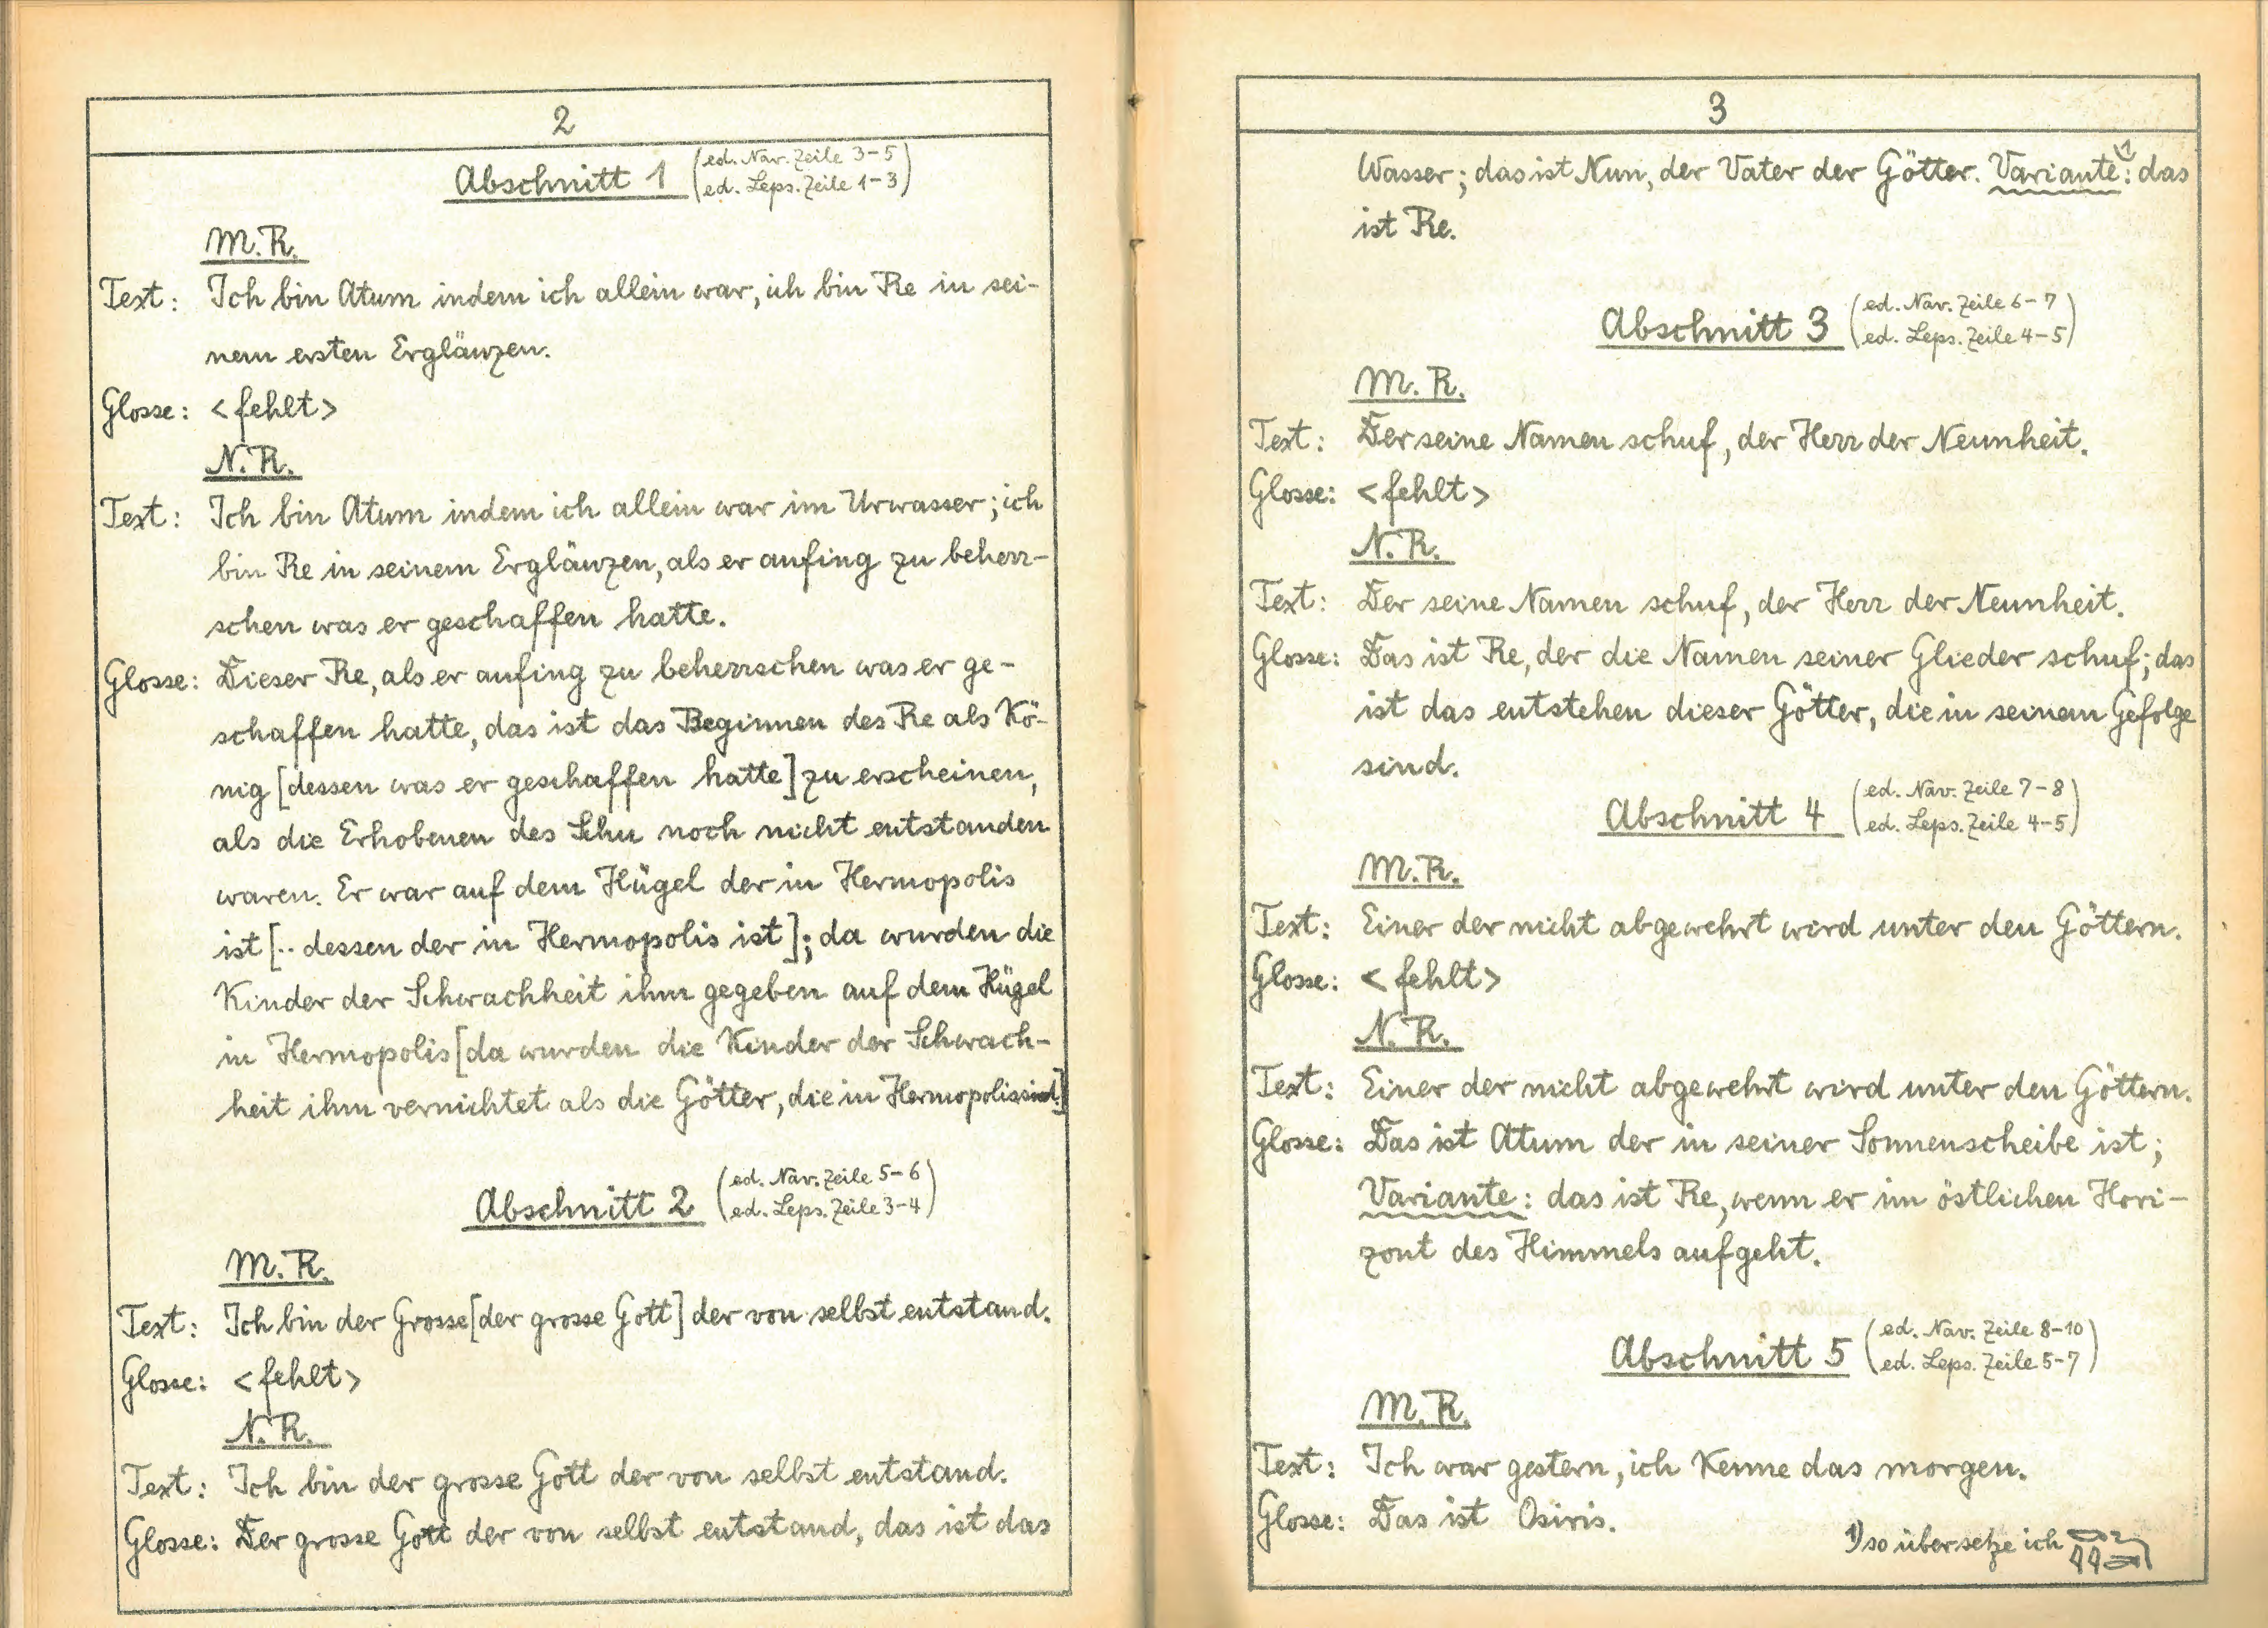 2
Abschnitt 1 (ed. Nav. Zeile 3-5)
(ed. Leps. Zeile 1-3)
M.R.
Text: Ich bin Atum indem ich allein war, ich bin Re in sei-
nem ersten Erglänzen.
Glosse: <fehlt>
N.R.
Text: Ich bin Atum indem ich allein war im Urwasser; ich
bin Re in seinem Erglänzen, als er anfing zu beherr-
schen was er geschaffen hatte.
Glosse: Dieser Re, als er anfing zu beherrschen was er ge-
schaffen hatte, das ist das Beginnen des Re als Kö-
nig [dessen was er geschaffen hatte] zu erscheinen,
als die Erhobenen des Schu noch nicht entstanden
waren. Er war auf dem Hügel der in Hermopolis
ist [.. dessen der in Hermopolis ist]; da wurden die
Kinder der Schwachheit ihm gegeben auf dem Hügel
in Hermopolis [da wurden die Kinder der Schwach-
heit ihm vernichtet als die Götter, die in Hermopolis sind]
Abschnitt 2 (ed. Nav. Zeile 5-6)
(ed. Leps. Zeile 3-4)
M.R.
Text: Ich bin der Grosse [der grosse Gott] der von selbst entstand.
Glosse: <fehlt>
N.R.
Text: Ich bin der grosse Gott der von selbst entstand.
Glosse: Der grosse Gott der von selbst entstand, das ist das
3
Wasser; das ist Nun, der Vater der Götter. Variante 1): das
ist Re.
Abschnitt 3 (ed. Nav. Zeile 6-7)
(ed. Leps. Zeile 4-5)
M.R.
Text: Der seine Namen schuf, der Herr der Neunheit.
Glosse: <fehlt>
N.R.
Text: Der seine Namen schuf, der Herr der Neunheit.
Glosse: Das ist Re, der die Namen seiner Glieder schuf; das
ist das entstehen dieser Götter, die in seinem Gefolge
sind.
Abschnitt 4 (ed. Nav. Zeile 7-8)
(ed. Leps. Zeile 4-5)
M.R.
Text: Einer der nicht abgewehrt wird unter den Göttern.
Glosse: <fehlt>
N.R.
Text: Einer der nicht abgewehrt wird unter den Göttern.
Glosse: Das ist Atum der in seiner Sonnenscheibe ist;
Variante: das ist Re, wenn er im östlichen Hori-
zont des Himmels aufgeht.
Abschnitt 5 (ed. Nav. Zeile 8-10)
(ed. Leps. Zeile 5-7)
M.R.
Text: Ich war gestern, ich kenne das morgen.
Glosse: Das ist Osiris.
1) so übersetze ich